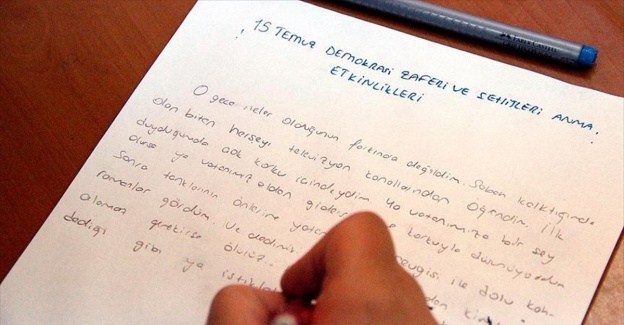 15 TEMUZ DEMOKRASİ ZAFERİ VE ŞEHİTLERİ ANMA
ETKİNLİKLERİ
O gece neler olduğunun farkında değildim. Sabah kalktığımda
olan biten herşeyi televizyon kanallarından öğrendim. İlk
duyduğumda çok korku içindeydim ya vatanımıza bir şey
olursa ya vatanımız elden giderse korkuyla düşünüyordum
Sonra tankların önlerine yatan sevgisi ile dolu kah-
ramanlar gördüm ve dedimki
alamaz gerekirse ölürüz
dediği gibi ya istiklal